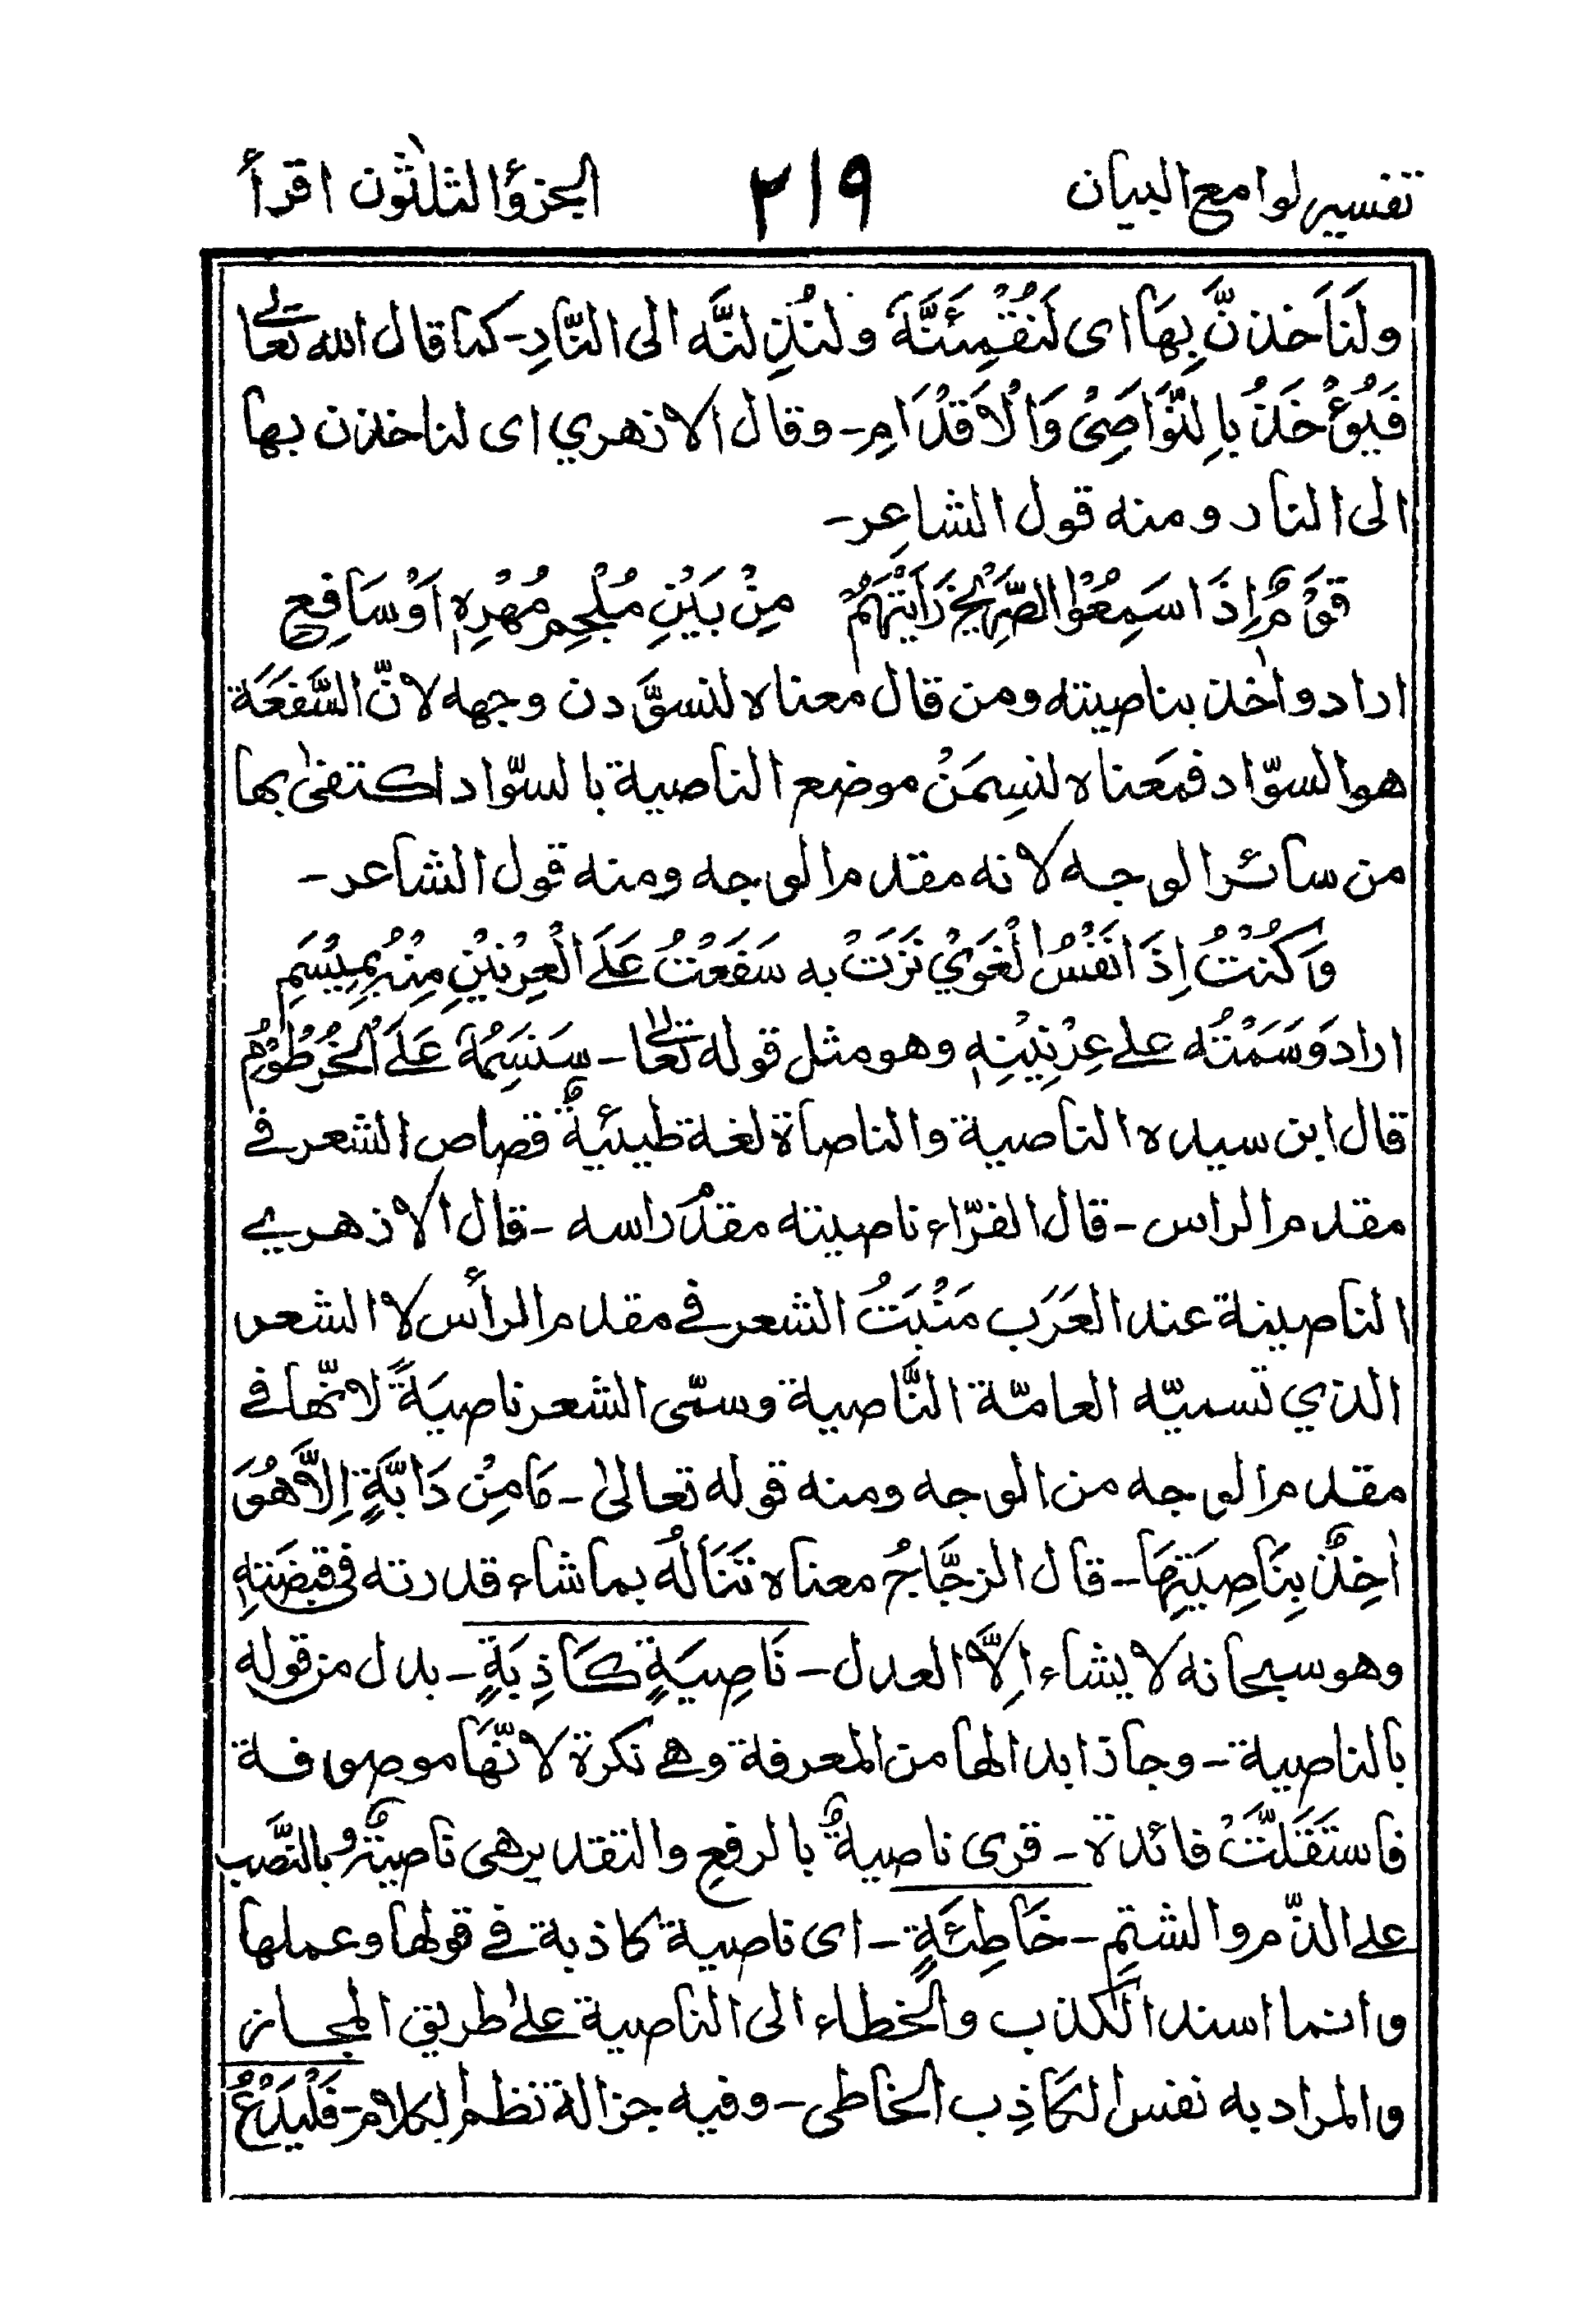 تفسير لوامع البيان ٢١٩ الجزؤ الثلثون اقرأ
ولَنَاخَذنَّ بِهَا اى لَنُقْمِئَنَّهُ ولنُذِلنَّه الى النَّارِ - كما قال الله تعالى
فَيُؤْخَذُ بِالنَّوَاصِىْ وَالْاَقْدَامِ - وقال الازهري اى لناخذن بها
الى النار ومنه قول الشاعِر -
قَوْمٌ اِذَا سَمِعُوْا الصَّرِيْخَ رَاَيْتَهُمْ مِنْ بَيْنِ مُلْجِمِ مُهْرِهٖ اَوْ سَافِعٖ
اراد واٰخذ بناصيته ومن قال معناه لنسوَّدن وجهه لانّ السَّفعَة
هو السوّاد فمَعناه لنسِمَنْ موضع الناصية بالسوّاد اكتفىٰ بها
من سائر الوجه لانه مقدم الوجه ومنه قول الشاعر -
وَكُنْتُ اِذَا نَفْسُ الْغَوِيْ نَزَتْ به سَفَعْتُ عَلَى الْعِرْنِيْنِ مِنْهُ بِمِيْسَمِ
اراد وَسَمْتُه على عِرْنِيْنِهٖ وهو مثل قوله تعالىٰ - سَنَسِمُهٗ عَلَى الْخُرْطُوْمِ
قال ابن سيده الناصية والناصاة لغة طيئيةٌ قصاص الشعر فى
مقدم الراس - قال الفرّاء ناصيته مقدّم راسه - قال الازهري
الناصينة عند العَرَب مَنْبَتُ الشعر فى مقدم الرأس لا الشعر
الذي تسميّه العامّة النَّاصية وسمّى الشعر ناصيَةً لانّها فى
مقدم الوجه من الوجه ومنه قوله تعالىٰ - مَا مِنْ دَابَّةٍ اِلَّا هُوَ
اٰخِذٌ بِنَاصِيَتِهَا - قال الزجَّاجُ معناه تَنَالُهُ بما شاء قدرته فى قبضَتهٖ
وهو سبحانه لا يشاء اِلَّا العدل - نَاصِيَةٍ كَاذِبَةٍ - بدل من قوله
بالناصية - وجاز ابدالها من المعرفة وهى نكرة لانّهَا موصوفة
فاستَقَلَّتْ فائدة - قرى ناصيةٌ بالرفع والتقدير هى ناصيةٌ و بالنَّصب
على الذّم والشتمِ - خَاطِئَةٍ - اى ناصية كاذبة فى قولها وعملها
وانما اسند الكذب والخطاء الى الناصية علىٰ طريق المجاز
والمراد به نفس الكاذِب الخاطى - وفيه جزالة نظم الكلام - فَلْيَدْعُ